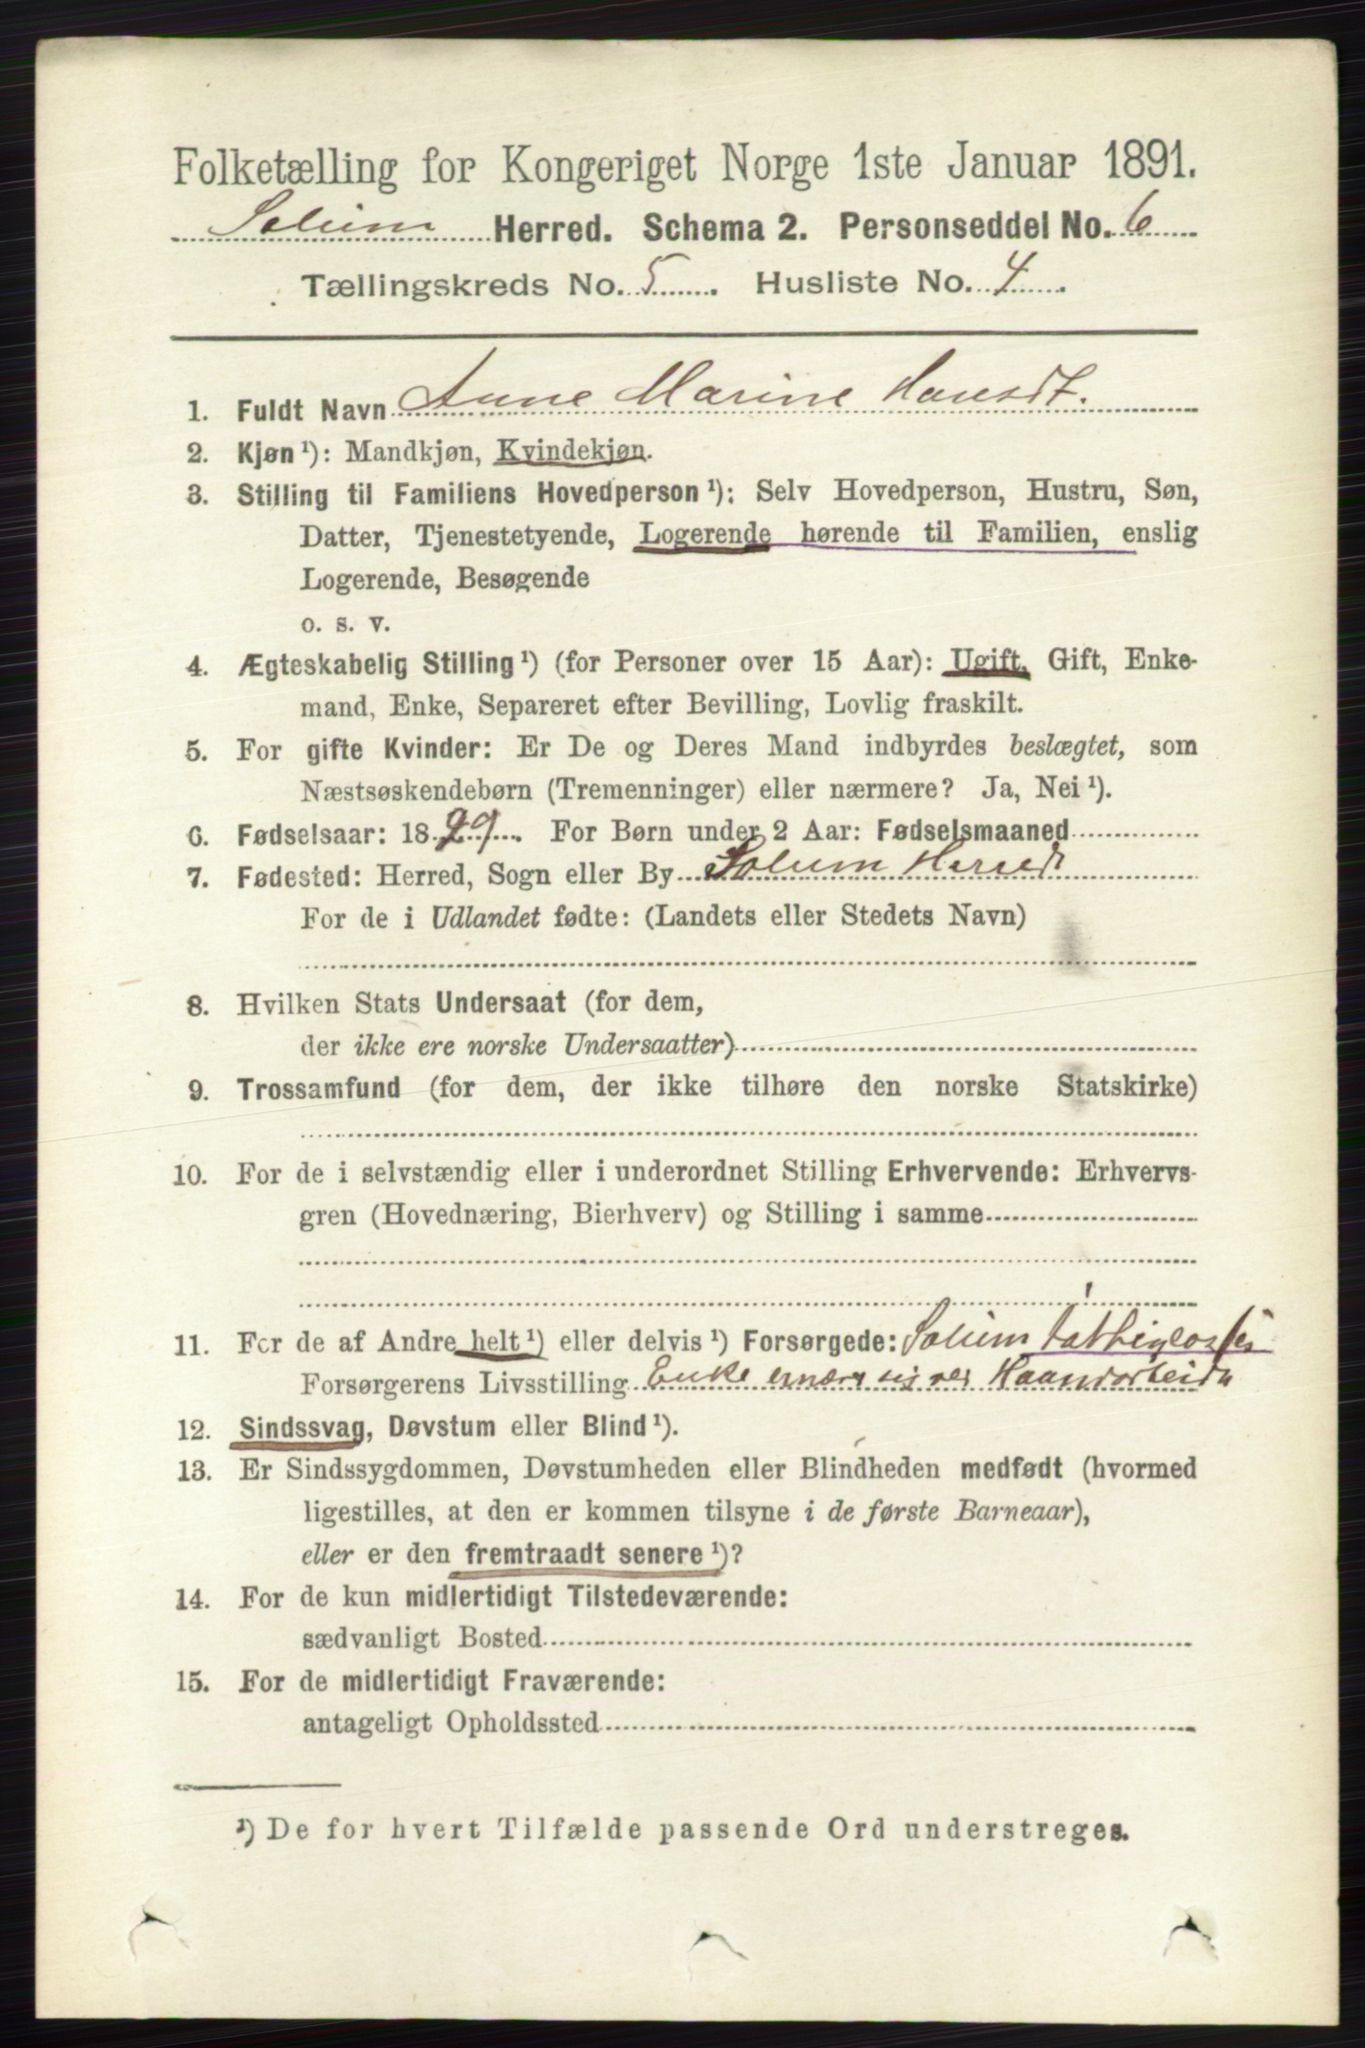 Folketælling for Kongeriget Norge 1ste Januar 1891.
Solum Herred. Schema 2. Personseddel No. 6
Tællingskreds No. 5. Husliste No. 4.
1. Fuldt Navn Anne Marine Hansdt.
2. Kjøn ¹): Mandkjøn, Kvindekjøn.
3. Stilling til Familiens Hovedperson ¹): Selv Hovedperson, Hustru, Søn,
Datter, Tjenestetyende, Logerende hørende til Familien, enslig
Logerende, Besøgende
o. s. v.
4. Ægteskabelig Stilling ¹) (for Personer over 15 Aar): Ugift, Gift, Enke-
mand, Enke, Separeret efter Bevilling, Lovlig fraskilt.
5. For gifte Kvinder: Er De og Deres Mand indbyrdes beslægtet, som
Næstsøskendebørn (Tremenninger) eller nærmere? Ja, Nei ¹).
6. Fødselsaar: 1829. For Børn under 2 Aar: Fødselsmaaned
7. Fødested: Herred, Sogn eller By Solum Herred
For de i Udlandet fødte: (Landets eller Stedets Navn)
8. Hvilken Stats Undersaat (for dem,
der ikke ere norske Undersaatter)
9. Trossamfund (for dem, der ikke tilhøre den norske Statskirke)
10. For de i selvstændig eller i underordnet Stilling Erhvervende: Erhvervs-
gren (Hovednæring, Bierhverv) og Stilling i samme
11. For de af Andre helt ¹) eller delvis ¹) Forsørgede: Solum
Forsørgerens Livsstilling Enke ernærer sig ved Haandarbeide
12. Sindssvag, Døvstum eller Blind ¹).
13. Er Sindssygdommen, Døvstumheden eller Blindheden medfødt (hvormed
ligestilles, at den er kommen tilsyne i de første Barneaar),
eller er den fremtraadt senere ¹)?
14. For de kun midlertidigt Tilstedeværende:
sædvanligt Bosted
15. For de midlertidigt Fraværende:
antageligt Opholdssted
¹) De for hvert Tilfælde passende Ord understreges.